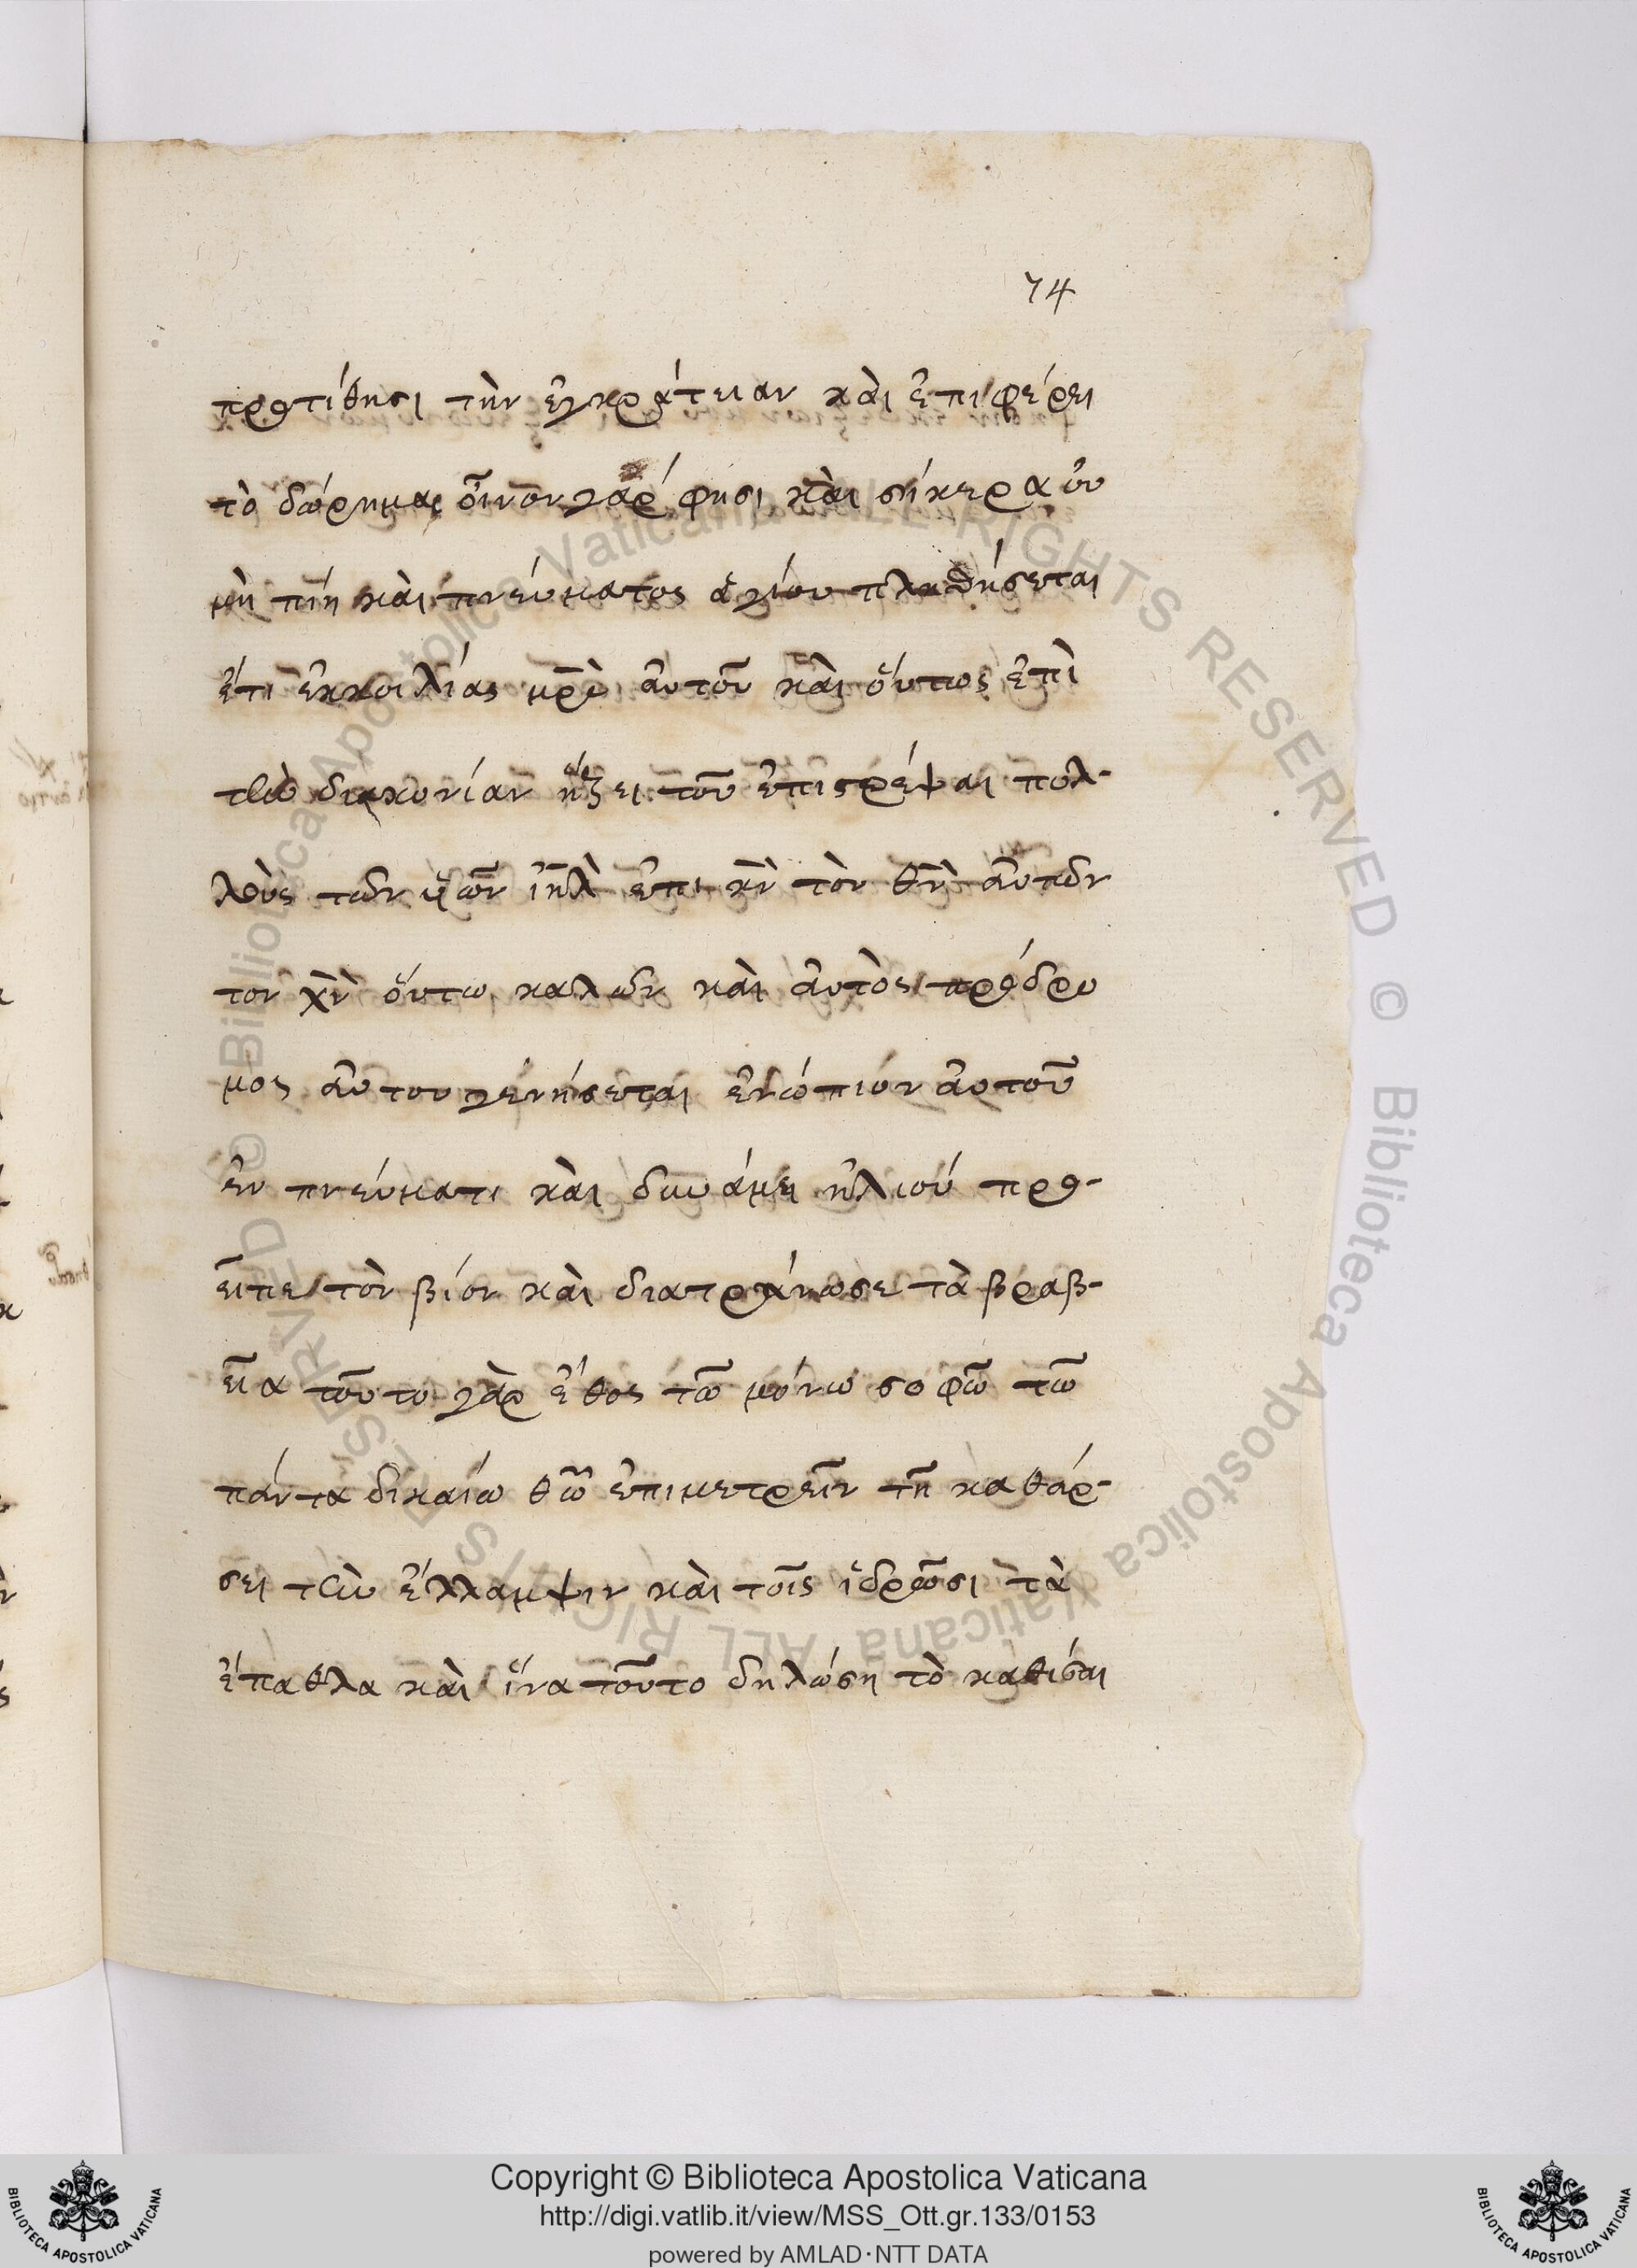 74
προτίθησι τὴν ἐγκράτειαν καὶ ἐπιφέρει
τὸ δώρημα οἶνον γάρ φησι καὶ σίκερα οὐ
μὴ πίῃ καὶ πνεύματος ἁγίου πλησθήσεται
ἔτι ἐκ κοιλίας μρ̅ς αὐτοῦ καὶ οὕτως ἐπὶ
τὴν διακονίαν ἥξει τοῦ ἐπιστρέψαι πολ-
λοὺς τῶν υἱῶν ἰη̅λ ἐπι κ̅ν τὸν θ̅ν αὐτῶν
τον χ̅ν οὕτω καλῶν καὶ αὐτὸς πρόδρο
μος αὐτου γενήσεται ἐνώπιον αὐτοῦ
ἐν πνεύματι καὶ δυνάμει ἠλιού προ-
εῖπε τὸν βίον καὶ διατράνωσε τὰ βραβ-
εῖα τοῦτο γὰρ ἔθος τῶ μόνω σοφῶ τῶ
πάντα δικαίω θ̅ω ἐπιμετρεῖν τῆ καθάρ-
σει τὴν ἔλλαμψιν καὶ τοῖς ἱδρῶσι τὰ
ἔπαθλα καὶ ἵνα τοῦτο δηλώση τὸ καθίσαι
Copyright © Biblioteca Apostolica Vaticana
http://digi.vatlib.it/view/MSS_Ott.gr.133/0153
powered by AMLAD·NTT DATA
BIBLIOTECA APOSTOLICA VATICANA
BIBLIOTECA APOSTOLICA VATICANA
© Biblioteca Apostolica Vaticana ALL RIGHTS RESERVED © Biblioteca Apostolica Vaticana ALL RIGHTS RESERVED